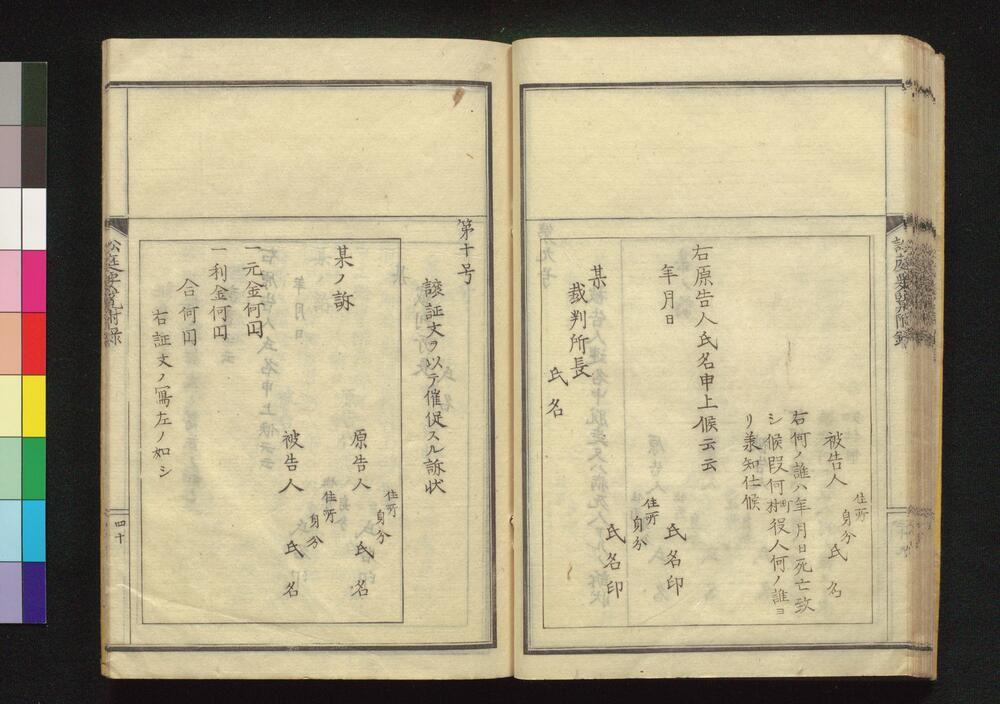 被告人 住所 身分 氏名
右何ノ誰ハ年月日死亡致
シ候段何町村役人何ノ誰ヨ
リ兼知仕候
右原告人氏名申上候云云
年月日
氏名印
住所 身分 氏名印
某
裁判所長
氏名
第十号
譲証文ヲ以テ催促スル訴状
某ノ訴
原告人 住所 身分 氏名
被告人 住所 身分 氏名
一元金何円
一利金何円
合何円
右証文ノ寫左ノ如シ
四十